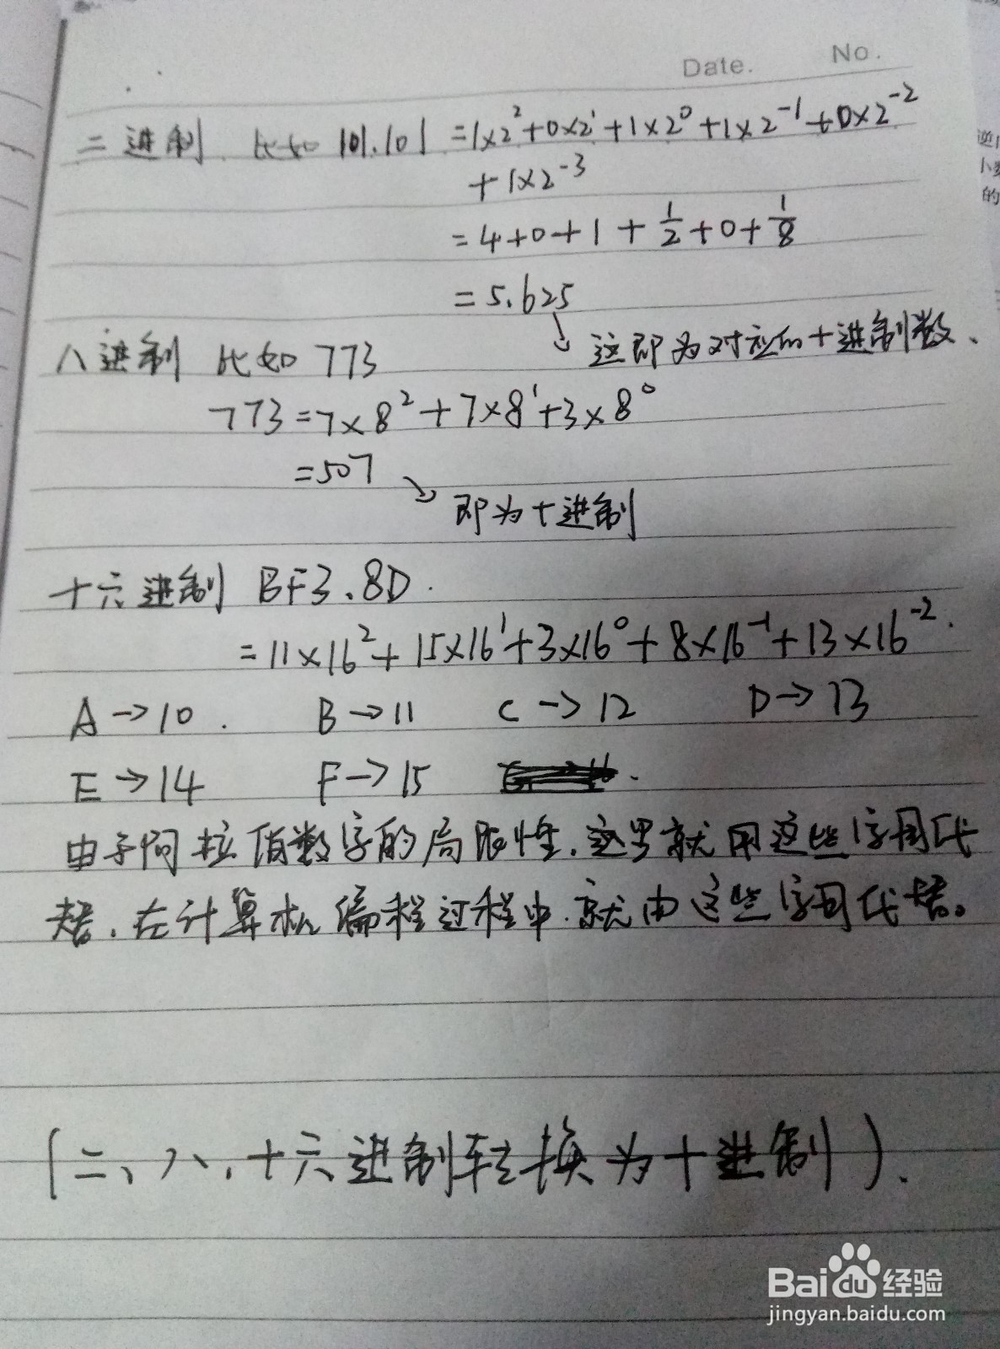 Date. No.
二进制 比如 101.101 =1×2²+0×2¹+1×2⁰+1×2⁻¹+0×2⁻²
+1×2⁻³
=4+0+1+1/2+0+1/8
=5.625
↘ 这即为对应的十进制数、
八进制 比如 773
773=7×8²+7×8¹+3×8⁰
=507
↘ 即为十进制
十六进制 BF3.8D.
=11×16²+15×16¹+3×16⁰+8×16⁻¹+13×16⁻².
A→10. B→11 C→12 D→13
E→14 F→15
由于阿拉伯数字的局限性,这里就用这些字母代
替,在计算机编程过程中,就由这些字母代替。
(二、八、十六进制转换为十进制).
Baidu经验
jingyan.baidu.com